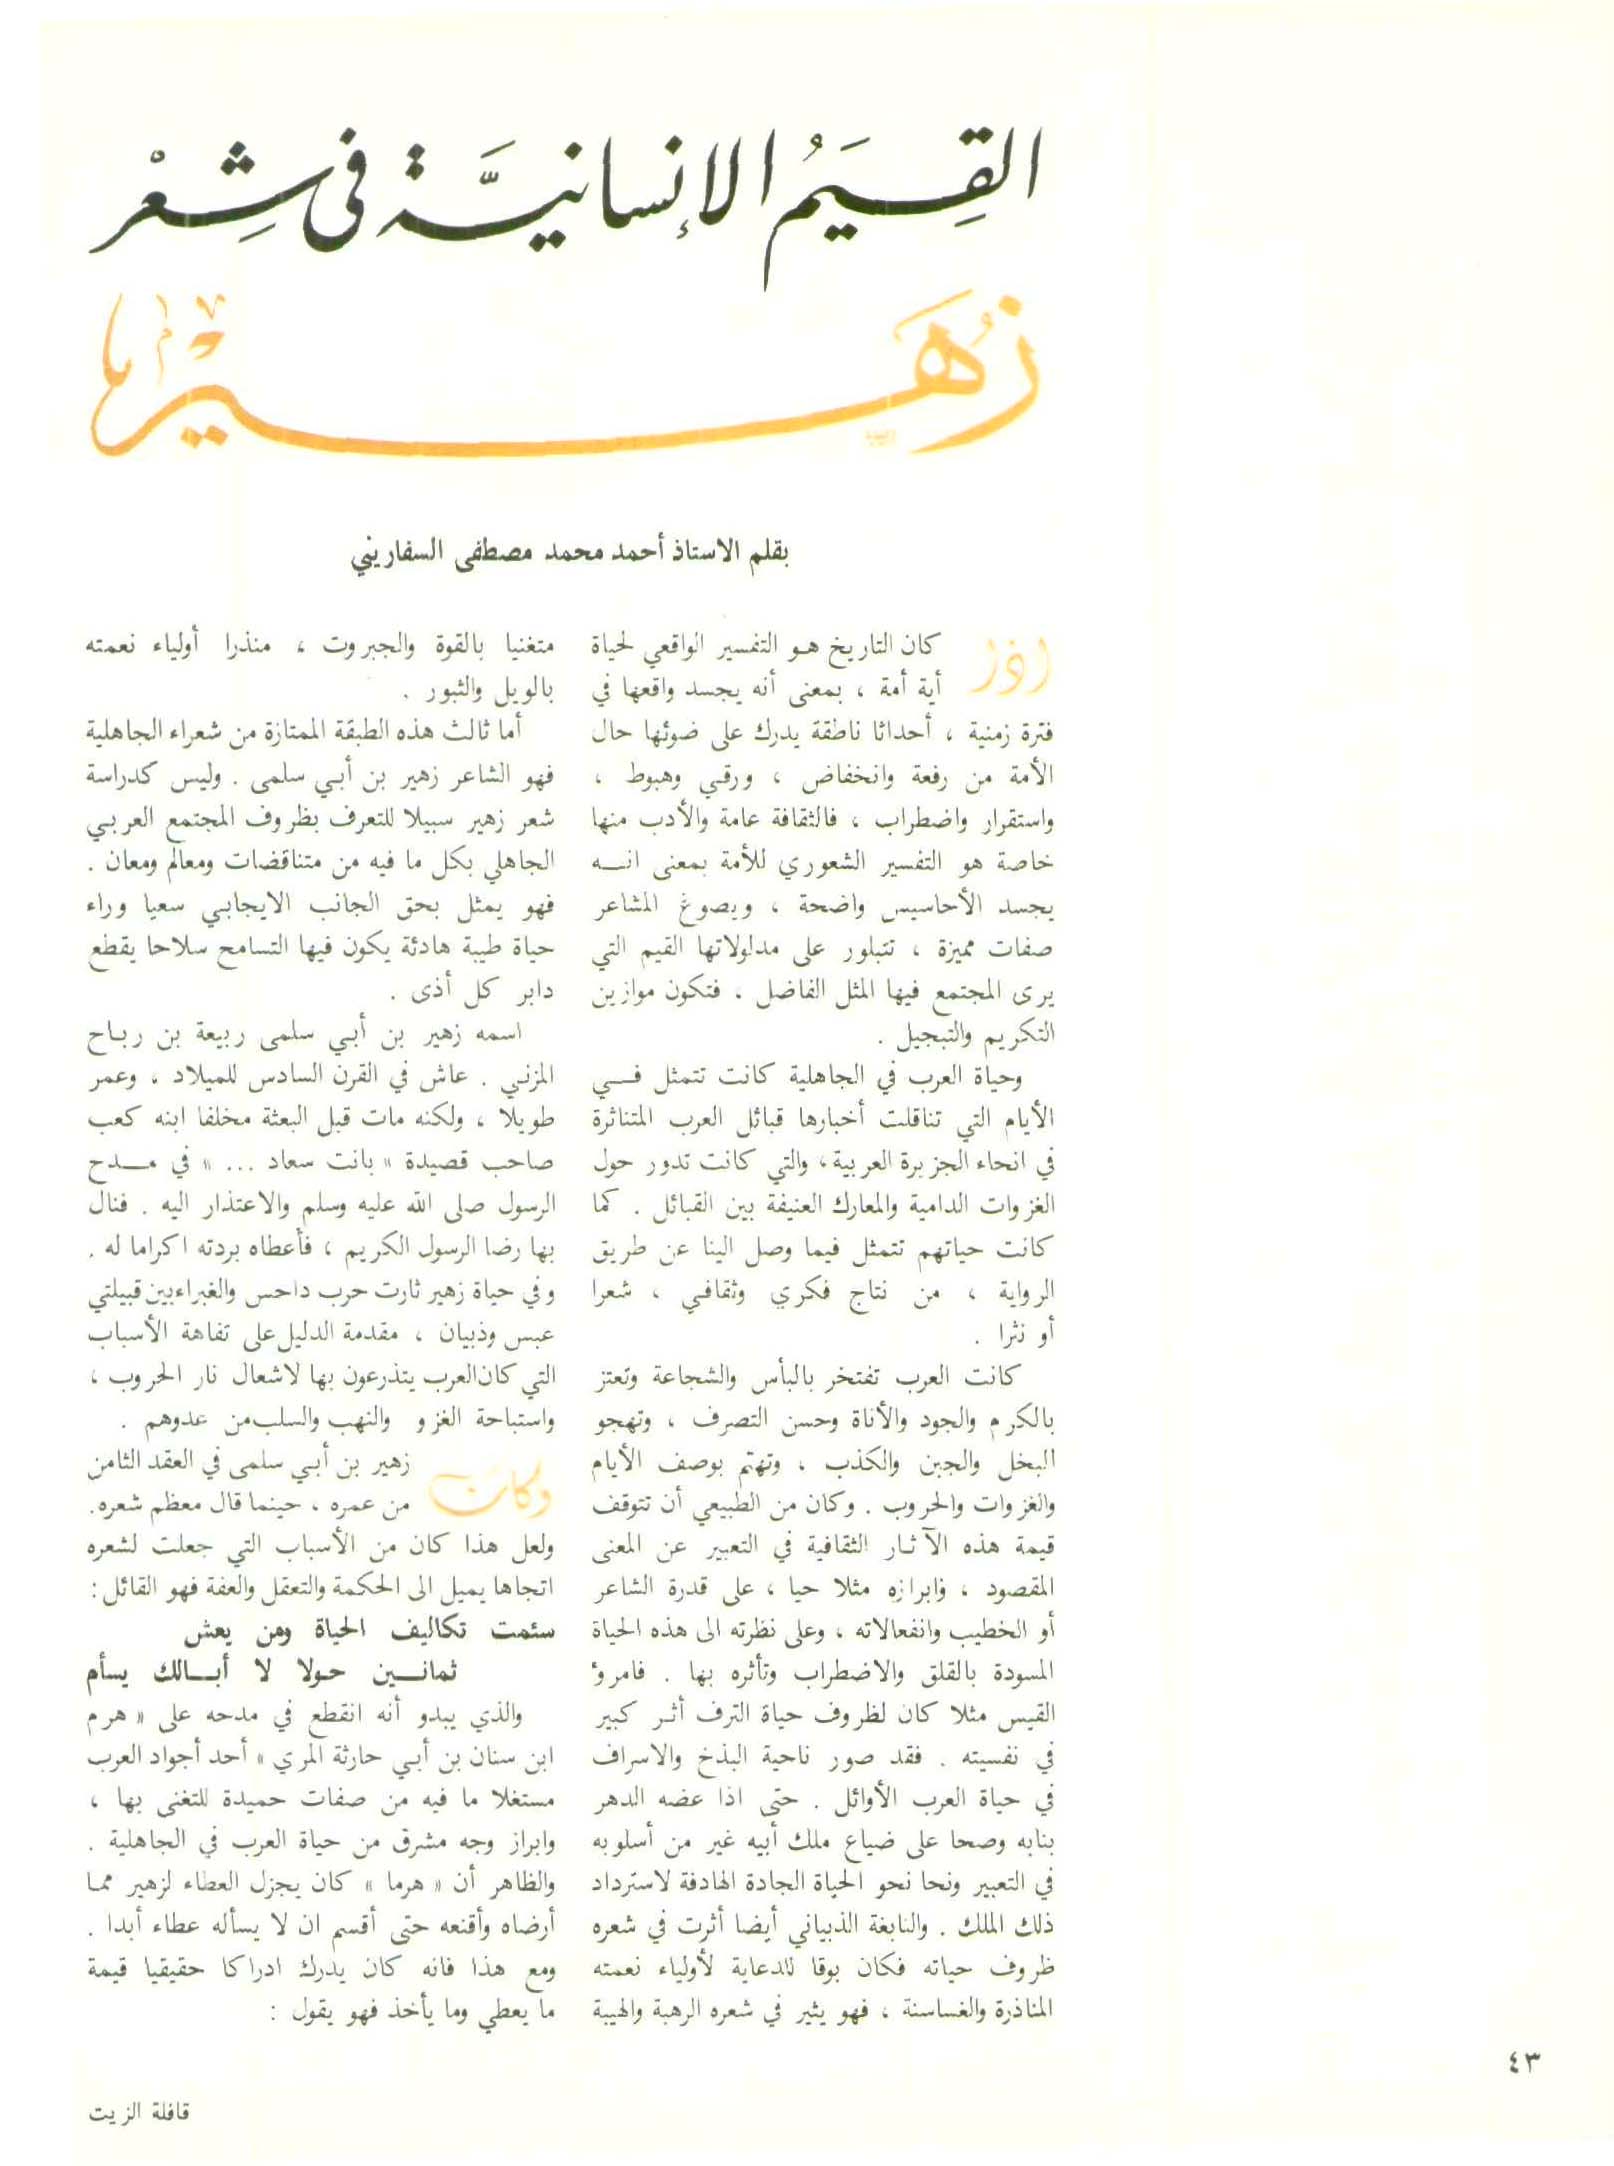 القِيَمُ الإنسانيَّة فى شِعْر
زُهَيْر
بقلم الاستاذ أحمد محمد مصطفى السفاريني
اذا كان التاريخ هو التفسير الواقعي لحياة
أية أمة ، بمعنى أنه يجسد واقعها في
فترة زمنية ، أحداثا ناطقة يدرك على ضوئها حال
الأمة من رفعة وانخفاض ، ورقي وهبوط ،
واستقرار واضطراب ، فالثقافة عامة والأدب منها
خاصة هو التفسير الشعوري للأمة بمعنى انه
يجسد الأحاسيس واضحة ، ويصوغ المشاعر
صفات مميزة ، تتبلور على مدلولاتها القيم التي
يرى المجتمع فيها المثل الفاضل . فتكون موازين
التكريم والتبجيل .
وحياة العرب في الجاهلية كانت تتمثل في
الأيام التي تناقلت أخبارها قبائل العرب المتناثرة
في انحاء الجزيرة العربية، والتي كانت تدور حول
الغزوات الدامية والمعارك العنيفة بين القبائل . كما
كانت حياتهم تتمثل فيما وصل الينا عن طريق
الرواية ، من نتاج فكري وثقافي ، شعرا
أو نثرا .
كانت العرب تفتخر بالبأس والشجاعة وتعتز
بالكرم والجود والأناة وحسن التصرف ، وتهجو
البخل والجبن والكذب ، وتهتم بوصف الأيام
والغزوات والحروب . وكان من الطبيعي أن تتوقف
قيمة هذه الآثار الثقافية في التعبير عن المعنى
المقصود ، وابرازه مثلا حيا ، على قدرة الشاعر
أو الخطيب وانفعالاته ، وعلى نظرته الى هذه الحياة
المسودة بالقلق والاضطراب وتأثره بها . فامرؤ
القيس مثلا كان لظروف حياة الترف أثر كبير
في نفسيته . فقد صور ناحية البذخ والاسراف
في حياة العرب الأوائل . حتى اذا عضه الدهر
بنابه وصحا على ضياع ملك أبيه غير من أسلوبه
في التعبير ونحا نحو الحياة الجادة الهادفة لاسترداد
ذلك الملك . والنابغة الذبياني أيضا أثرت في شعره
ظروف حياته فكان بوقا للدعاية لأولياء نعمته
المناذرة والغساسنة ، فهو يثير في شعره الرهبة والهيبة
متغنيا بالقوة والجبروت ، منذرا أولياء نعمته
بالويل والثبور .
أما ثالث هذه الطبقة الممتازة من شعراء الجاهلية
فهو الشاعر زهير بن أبي سلمى . وليس كدراسة
شعر زهير سبيلا للتعرف بظروف المجتمع العربي
الجاهلي بكل ما فيه من متناقضات ومعالم ومعان .
فهو يمثل بحق الجانب الايجابي سعيا وراء
حياة طيبة هادئة يكون فيها التسامح سلاحا يقطع
دابر كل أذى .
اسمه زهير بن أبي سلمى ربيعة بن رباح
المزني . عاش في القرن السادس للميلاد ، وعمر
طويلا ، ولكنه مات قبل البعثة مخلفا ابنه كعب
صاحب قصيدة « بانت سعاد ... » في مدح
الرسول صلى الله عليه وسلم والاعتذار اليه . فنال
بها رضا الرسول الكريم ، فأعطاه بردته اكراما له .
وفي حياة زهير ثارت حرب داحس والغبراء بين قبيلتي
عبس وذبيان ، مقدمة الدليل على تفاهة الأسباب
التي كان العرب يتذرعون بها لاشعال نار الحروب ،
واستباحة الغزو والنهب والسلب من عدوهم .
وكان زهير بن أبي سلمى في العقد الثامن
من عمره ، حينما قال معظم شعره.
ولعل هذا كان من الأسباب التي جعلت لشعره
اتجاها يميل الى الحكمة والتعقل والعفة فهو القائل :
سئمت تكاليف الحياة ومن يعش
ثمانين حولا لا أبالك يسأم
والذي يبدو أنه انقطع في مدحه على « هرم
ابن سنان بن أبي حارثة المري » أحد أجواد العرب
مستغلا ما فيه من صفات حميدة للتغنى بها ،
وابراز وجه مشرق من حياة العرب في الجاهلية .
والظاهر أن « هرما » كان يجزل العطاء لزهير مما
أرضاه وأقنعه حتى أقسم ان لا يسأله عطاء أبدا .
ومع هذا فانه كان يدرك ادراكا حقيقيا قيمة
ما يعطي وما يأخذ فهو يقول :
٤٣
قافلة الزيت